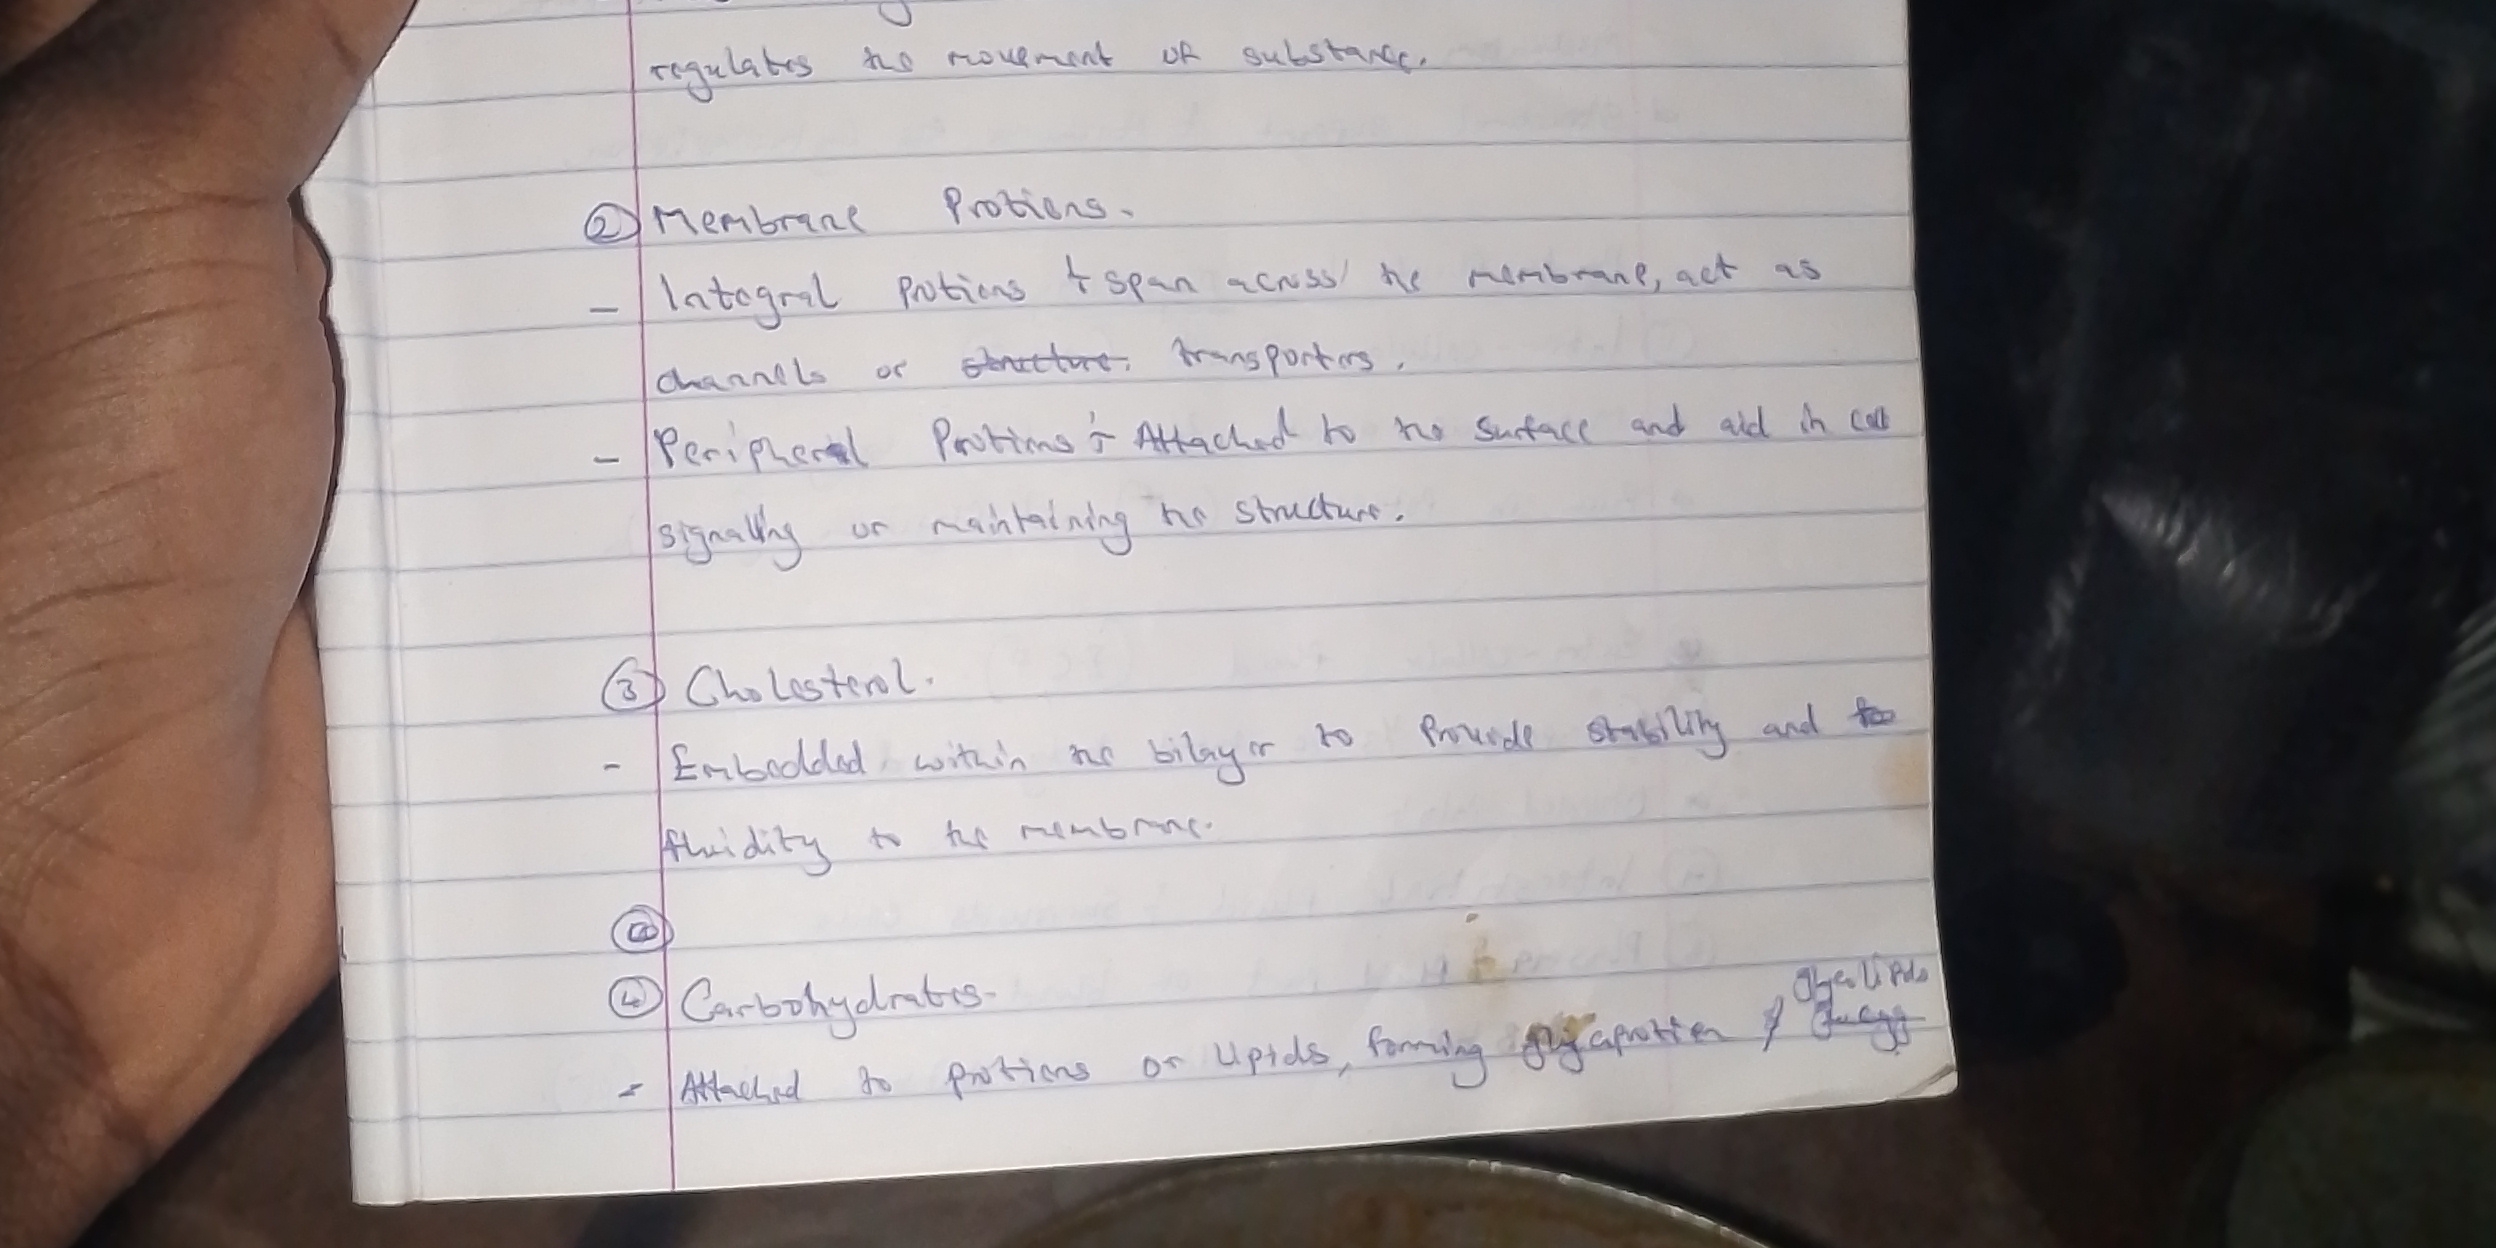 regulates the movement of substance.
② Membrane Protiens.
- Integral protiens ÷ span across the membrane, act as
channels or structure. transporters.
- Peripheral Protiens ÷ Attached to the surface and aid in cell
signalling or maintaining the structure.
③ Cholesterol.
- Embedded within the bilayer to Provide stability and to
fluidity to the membrane.
④
④ Carbohydrates.
Glycolipids
- Attached to protiens or lipids, forming glycoprotien &